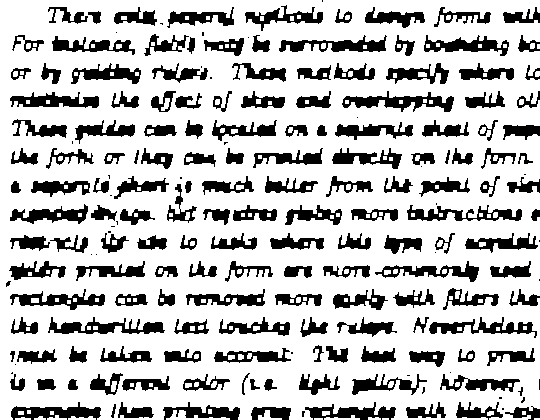 There exist several methods to design forms with
For instance, fields may be surrounded by bounding
or by guiding rulers. These methods specify where to
minimise the effect of skew and overlapping with
These guides can be located on a separate sheet of
the form or they can be printed directly on the form.
a separate sheet is much better from the point of
scanned image but requires giving more instructions
restricts its use to tasks where this type of
printed on the form are more commonly used
rectangles can be removed more easily with filters
the handwritten text touches the rulers. Nevertheless,
must be taken into account: The best way to print
is in a different color (i.e. light yellow), however,
expensive than printing gray rectangles with